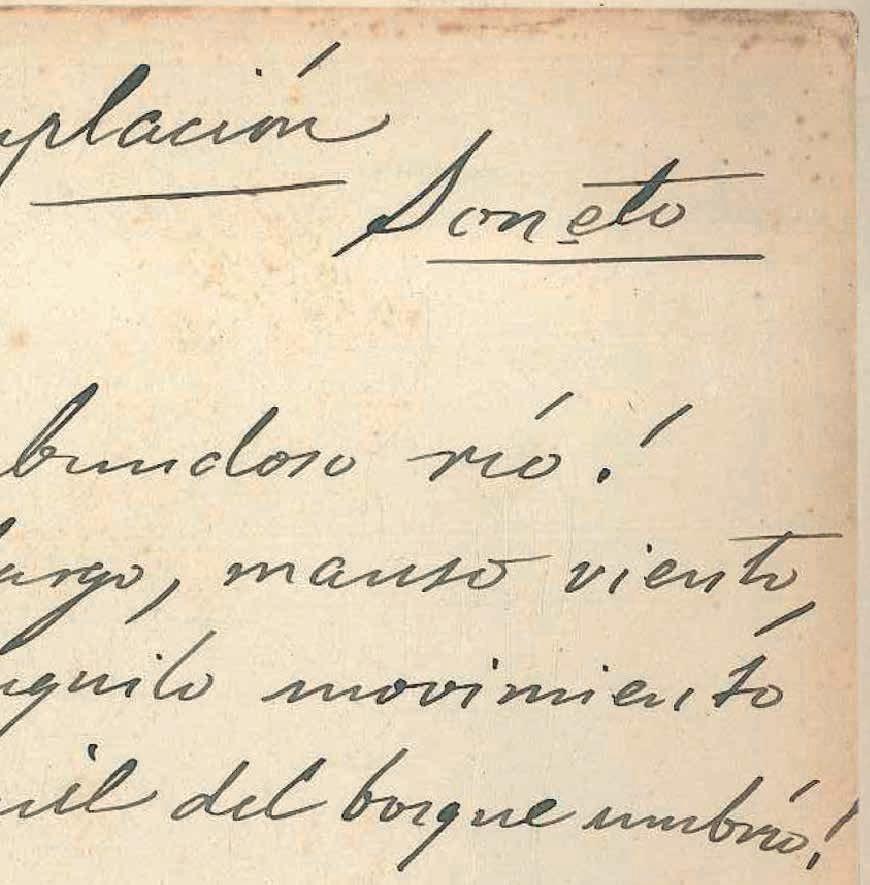 mplación
Soneto
bundoso río!
largo, manso viento
nquilo movimiento
nil del bosque umbrío!